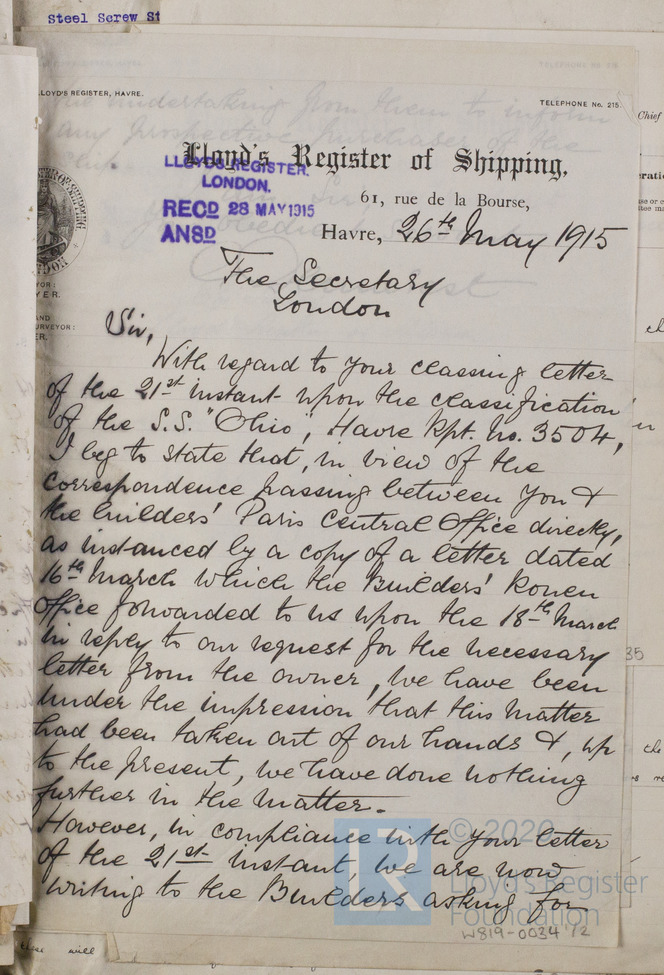 Steel Screw St
LLOYD'S REGISTER, HAVRE.
TELEPHONE No. 215.
Lloyd's Register of Shipping,
LLOYD'S REGISTER.
LONDON.
RECD 28 MAY 1915
ANSD
61, rue de la Bourse,
Havre, 26th May 1915
The Secretary
London
Sir,
With regard to your classing letter
of the 21st instant upon the classification
of the S.S. "Ohio", Havre Rpt. No. 3504,
I beg to state that, in view of the
correspondence passing between you &
the builders' Paris Central Office directly,
as instanced by a copy of a letter dated
16th March which the Builders' Rouen
Office forwarded to us upon the 18th March
in reply to our request for the necessary
letter from the owner, we have been
under the impression that this matter
had been taken out of our hands &, up
to the present, we have done nothing
further in the matter.
However, in compliance with your letter
of the 21st instant, we are now
writing to the Builders asking for
© 2020
Lloyd's Register
Foundation
W819-0034 1/2
Chief
will